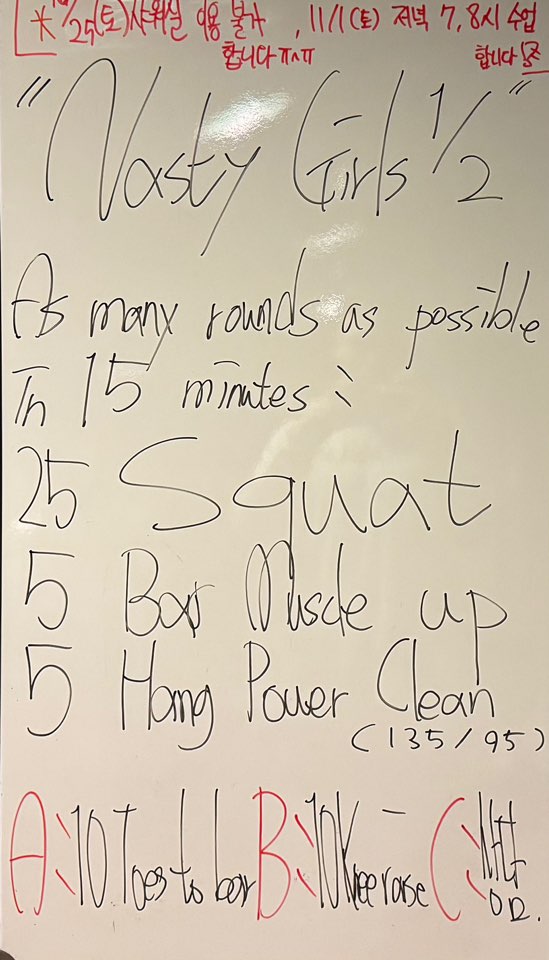 * 10/25(토) 샤워실 이용 불가, 11/1(토) 저녁 7, 8시 수업
합니다 ㅠㅅㅠ 합니다
"Nasty Girls 1/2"
As many rounds as possible
In 15 minutes:
25 Squat
5 Bar Muscle up
5 Hang Power Clean
(135/95)
A: 10 Toes to bar B: 10 Knee raise C: